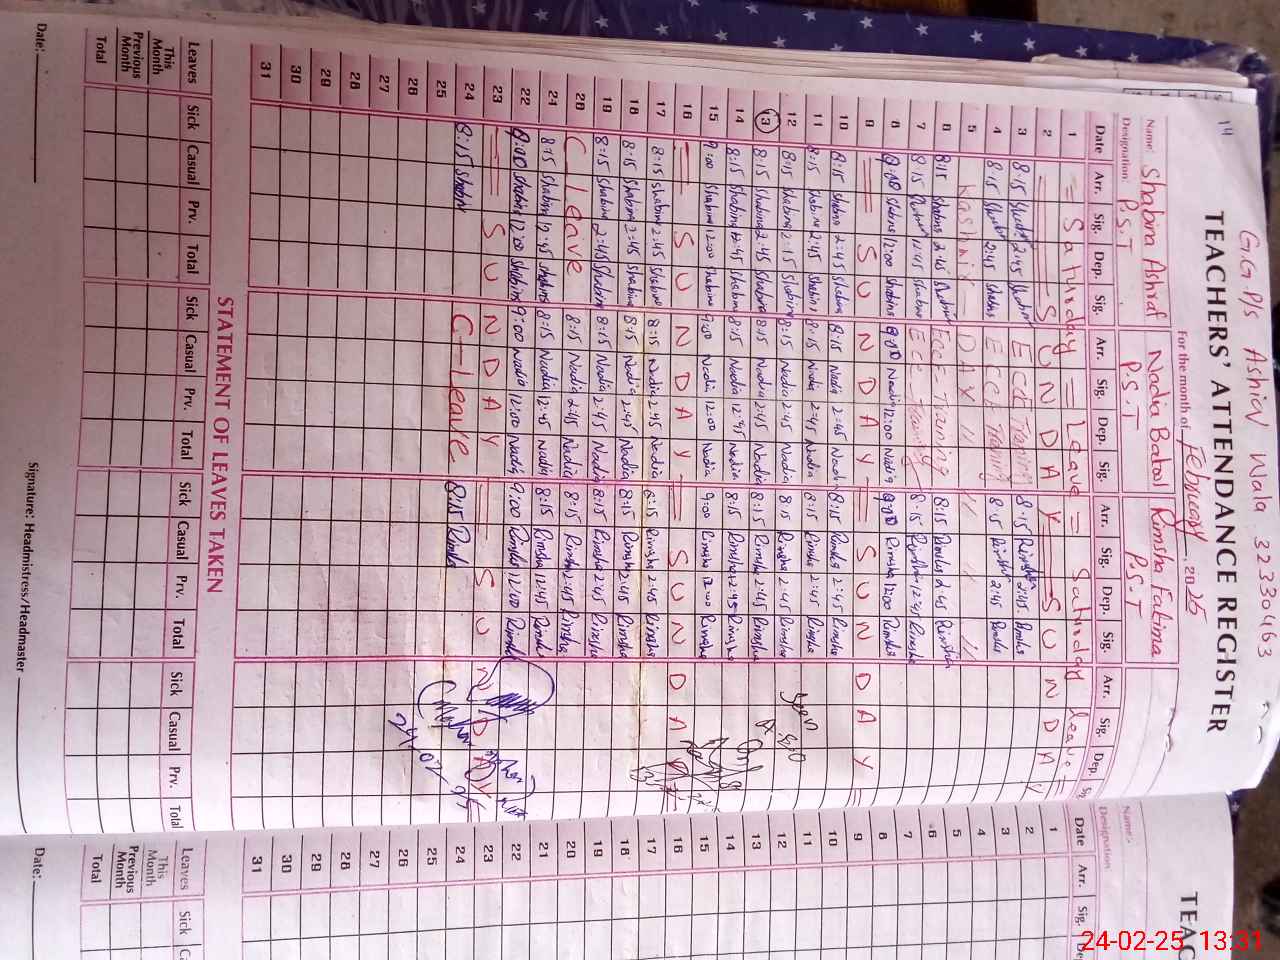 14
G.G.P/S Ashiev Wala 32330463
TEACHERS' ATTENDANCE REGISTER
For the month of February 2025
Name: Shabina Ashraf Nadia Batool Rimsha Fatima
Designation: P.S.T P.S.T P.S.T
Date Arr. Sig. Dep. Sig. Arr. Sig. Dep. Sig. Arr. Sig. Dep. Sig. Arr. Sig. Dep. Sig
1 = Saturday = Leave = Saturday Leave =
2 SUNDAY SUNDAY
3 8:15 2:45 ECE Training 8:15 Rimsha 2:45 Rimsha
4 8:15 2:45 ECE Training 8:15 Rimsha 2:45 Rimsha
5 Kashmir DAY
6 8:15 Shabina 2:45 ECE Training 8:15 2:45 Rimsha
7 8:15 12:45 Shabina ECE Training 8:15 Rimsha 12:45 Rimsha
8 9:00 Shabina 12:00 Shabina 9:00 Nadia 12:00 Nadia 9:00 Rimsha 12:00 Rimsha
9 SUNDAY SUNDAY
10 8:15 Shabina 2:45 Shabina 8:15 Nadia 2:45 Nadia 8:15 Rimsha 2:45 Rimsha
11 8:15 Shabina 2:45 Shabina 8:15 Nadia 2:45 Nadia 8:15 Rimsha 2:45 Rimsha
12 8:15 Shabina 2:15 Shabina 8:15 Nadia 2:45 Nadia 8:15 Rimsha 2:45 Rimsha
13 8:15 Shabina 2:45 Shabina 8:15 Nadia 2:45 Nadia 8:15 Rimsha 2:45 Rimsha
14 8:15 Shabina 12:45 Shabina 8:15 Nadia 12:45 Nadia 8:15 Rimsha 12:45 Rimsha
15 9:00 Shabina 12:00 Shabina 9:00 Nadia 12:00 Nadia 9:00 Rimsha 12:00 Rimsha
16 SUNDAY SUNDAY
17 8:15 Shabina 2:45 Shabina 8:15 Nadia 2:45 Nadia 8:15 Rimsha 2:45 Rimsha
18 8:15 Shabina 2:45 Shabina 8:15 Nadia 2:45 Nadia 8:15 Rimsha 2:45 Rimsha
19 8:15 Shabina 2:45 Shabina 8:15 Nadia 2:45 Nadia 8:15 Rimsha 2:45 Rimsha
20 C Leave 8:15 Nadia 2:45 Nadia 8:15 Rimsha 2:45 Rimsha
21 8:15 Shabina 12:45 Shabina 8:15 Nadia 12:45 Nadia 8:15 Rimsha 12:45 Rimsha
22 9:00 Shabina 12:00 Shabina 9:00 Nadia 12:00 Nadia 9:00 Rimsha 12:00 Rimsha
23 SUNDAY SUNDAY
24 8:15 Shabina C-Leave 8:15 Rimsha
24.02.25
25
26
27
28
29
30
31
STATEMENT OF LEAVES TAKEN
Leaves Sick Casual Prv. Total Sick Casual Prv. Total Sick Casual Prv. Total Sick Casual Prv. Total
This Month
Previous Month
Total
Date: Signature: Headmistress/Headmaster
TEAC
Name:
Designation
Date Arr. Sig.
1
2
3
4
5
6
7
8
9
10
11
12
13
14
15
16
17
18
19
20
21
22
23
24
25
26
27
28
29
30
31
Leaves Sick
This Month
Previous Month
Total
Date:
24-02-25 13:31